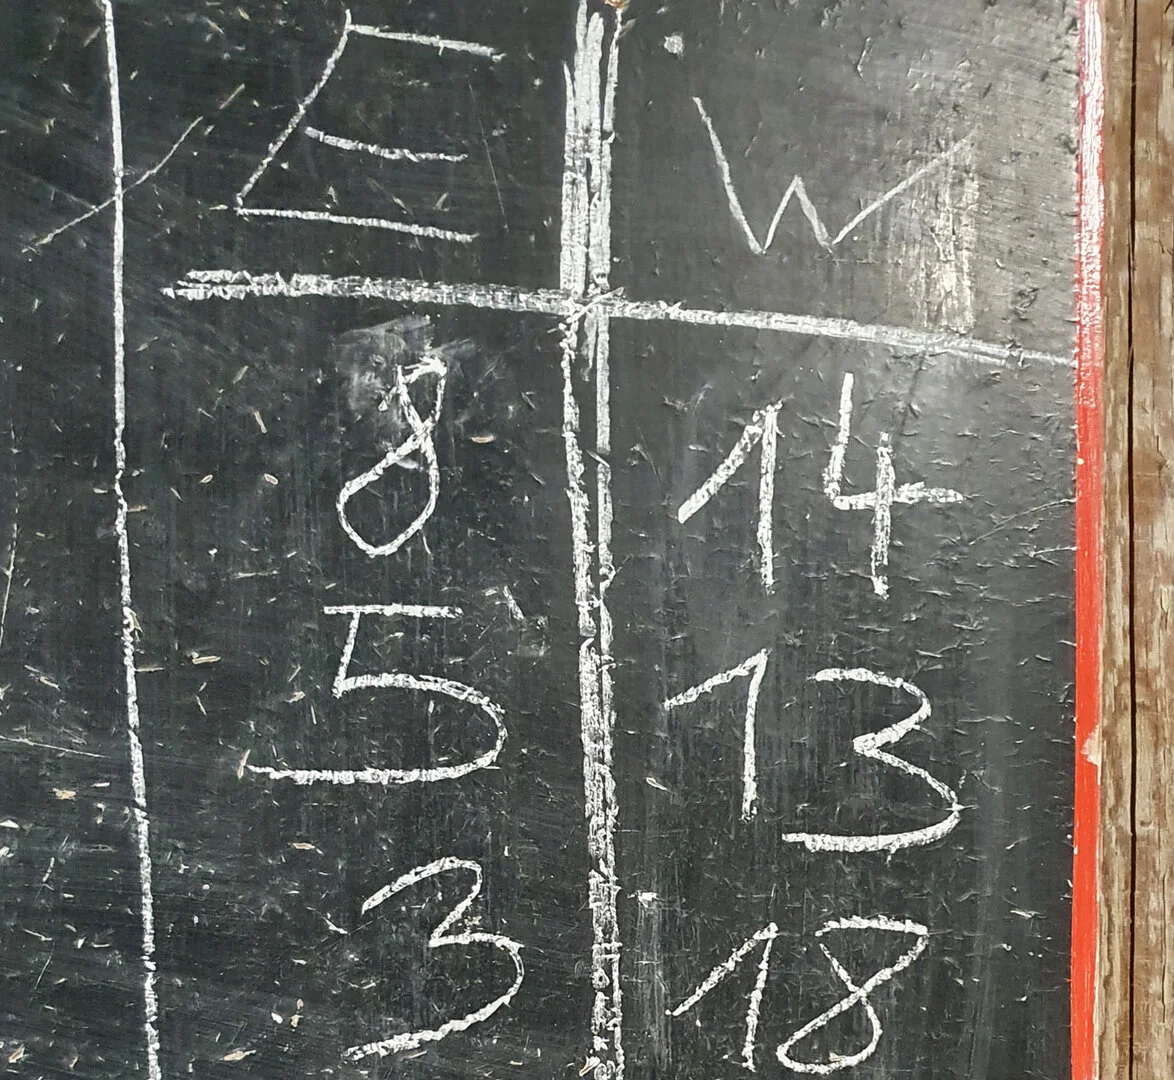 E W
8 14
5 13
3 18